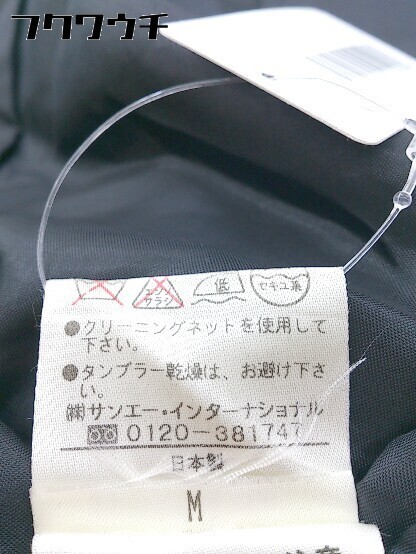 フクワウチ
エンソ
サラシ
低
セキユ系
●クリーニングネットを使用して
下さい。
●タンブラー乾燥は、お避け下さ
い。
㈱サンエー・インターナショナル
0120-381747
日本製
M